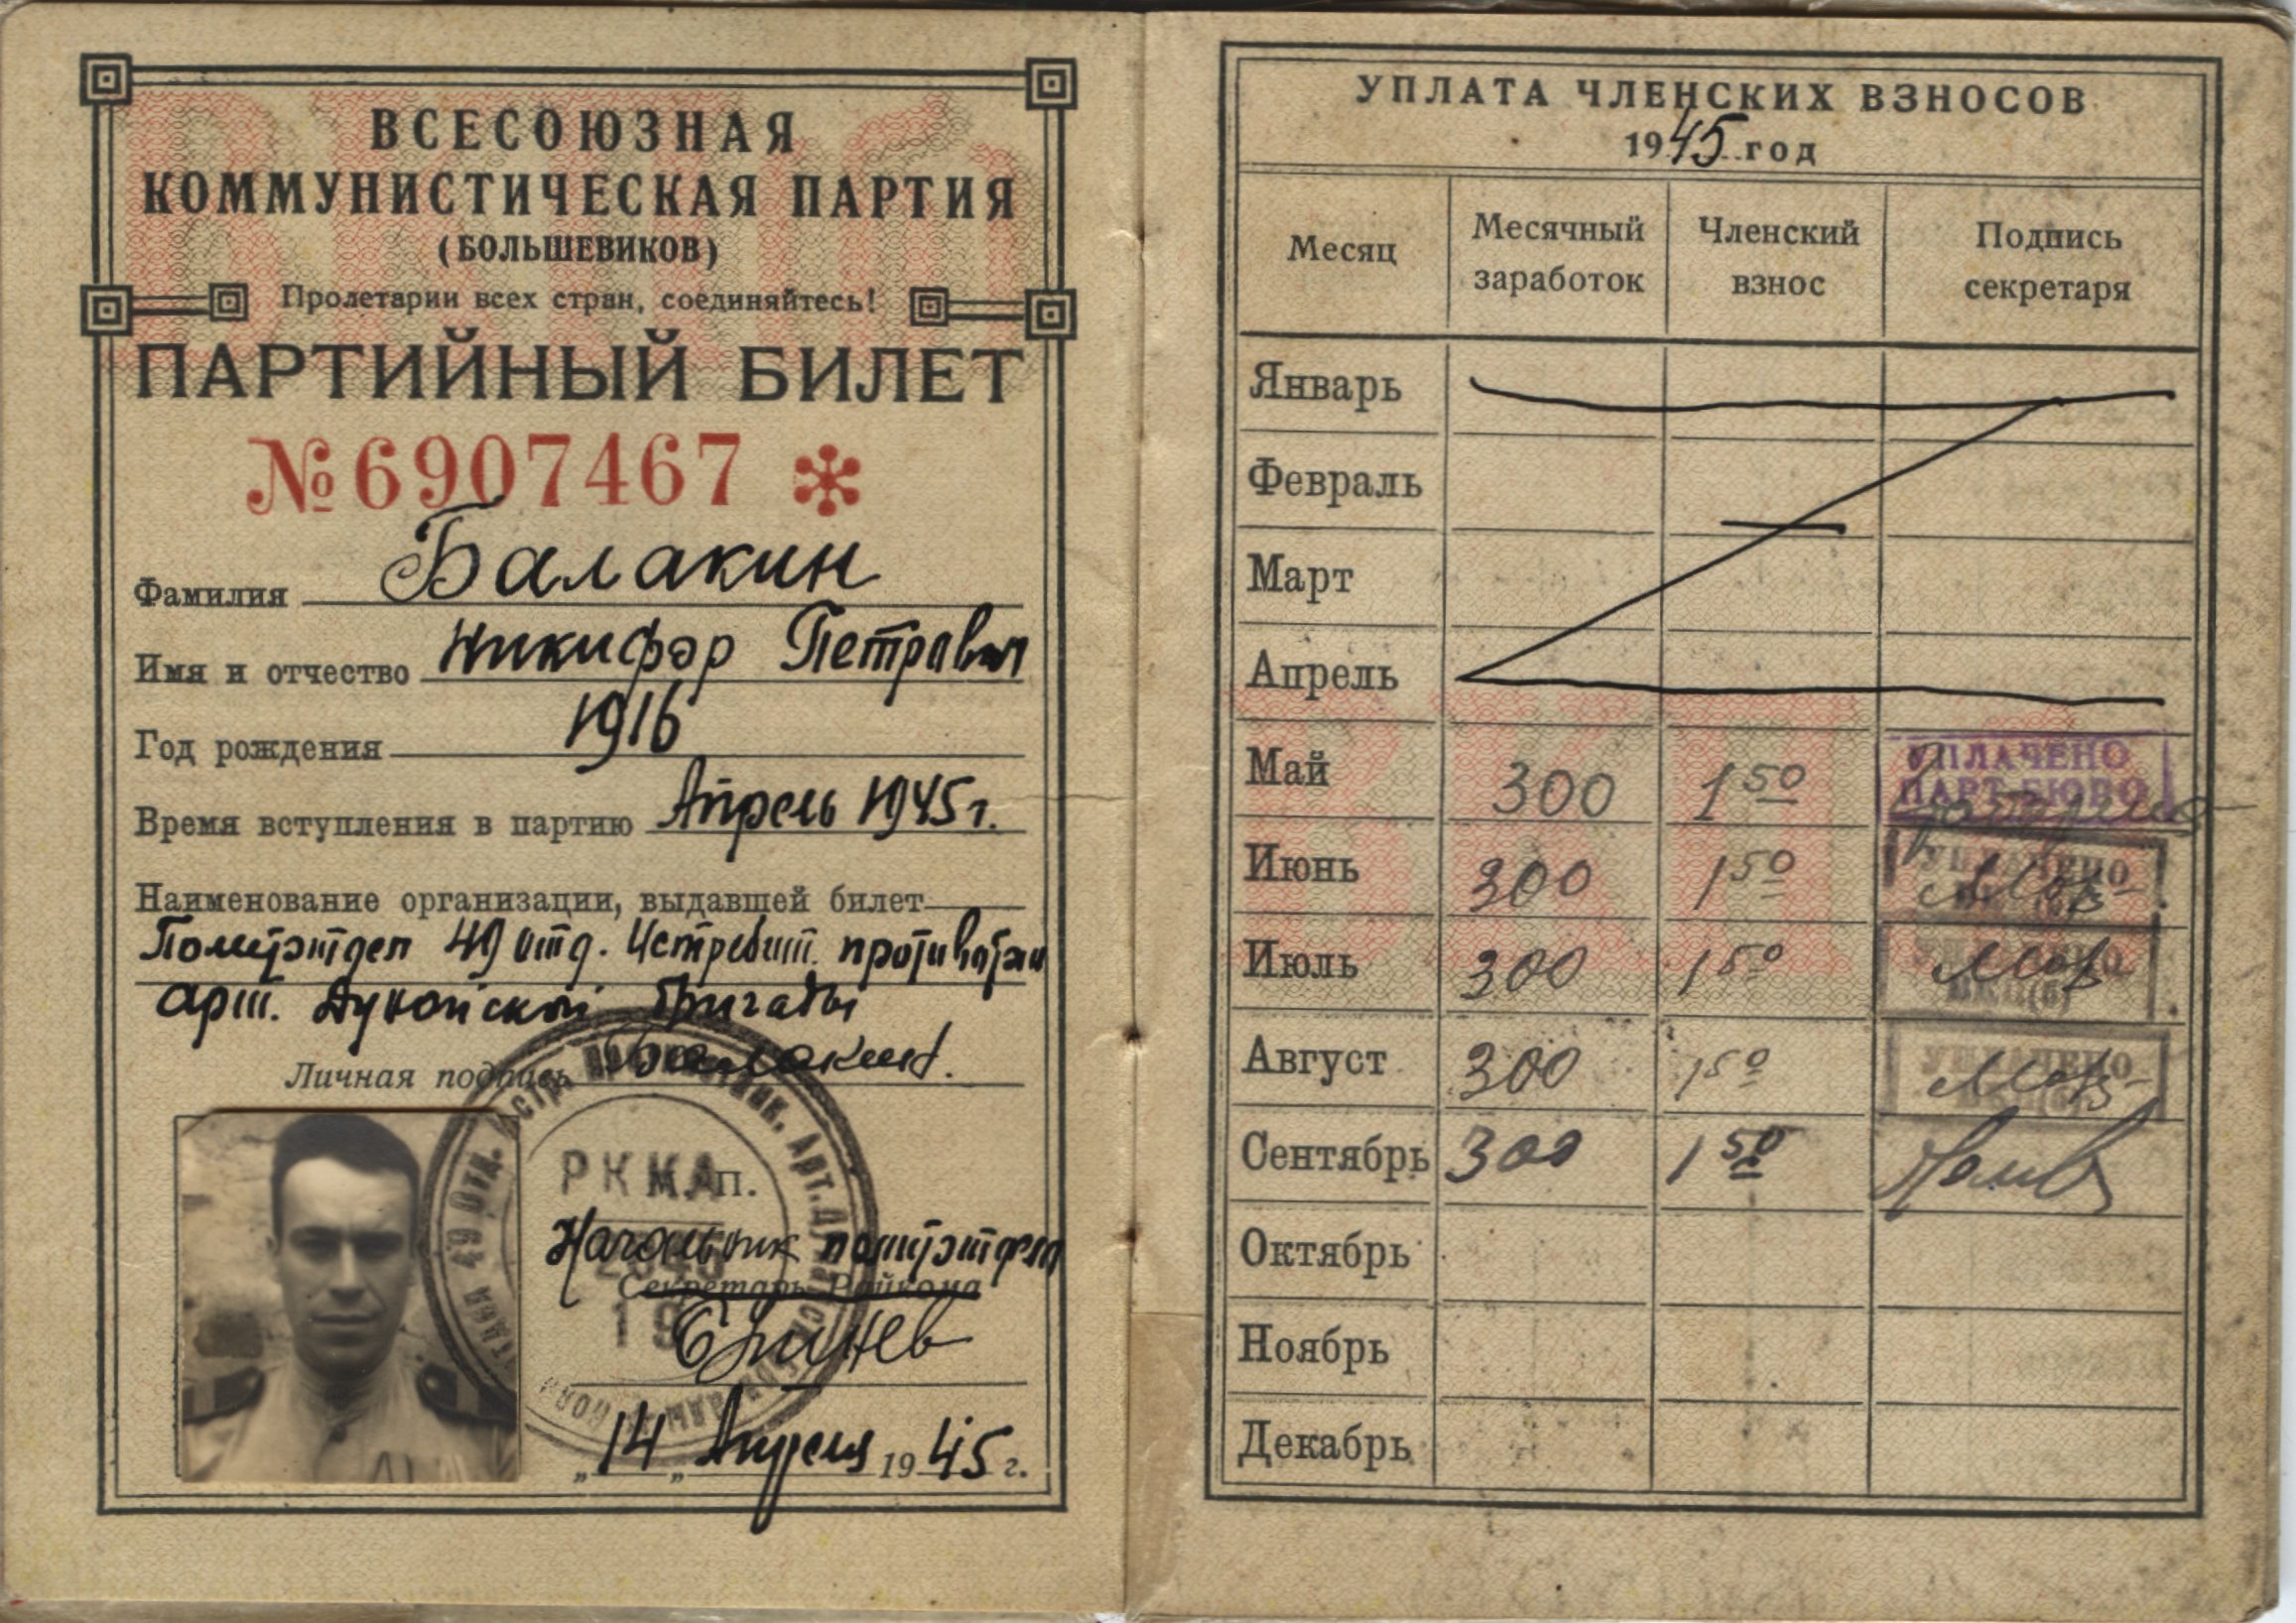 ВСЕСОЮЗНАЯ
КОММУНИСТИЧЕСКАЯ ПАРТИЯ
(БОЛЬШЕВИКОВ)
Пролетарии всех стран, соединяйтесь!
ПАРТИЙНЫЙ БИЛЕТ
№ 6907467 *
Фамилия Балакин
Имя и отчество Никифор Петрович
Год рождения 1916
Время вступления в партию Апрель 1945 г.
Наименование организации, выдавшей билет
Политотдел 49 отд. Истребит. противотан
арт. Дунайской бригады
Личная подпись Балакин.
РККА
М. П.
Начальник политотдела
Секретарь Райкома
„14„ Апреля 1945 г.
УПЛАТА ЧЛЕНСКИХ ВЗНОСОВ
1945 год
Месяц Месячный заработок Членский взнос Подпись секретаря
Январь
Февраль
Март
Апрель
Май 300 1 50 УПЛАЧЕНО ПАРТ БЮРО
Июнь 300 1 50 УПЛАЧЕНО ВКП(б)
Июль 300 1 50 УПЛАЧЕНО ВКП(б)
Август 300 1 50 УПЛАЧЕНО ВКП(б)
Сентябрь 300 1 50
Октябрь
Ноябрь
Декабрь